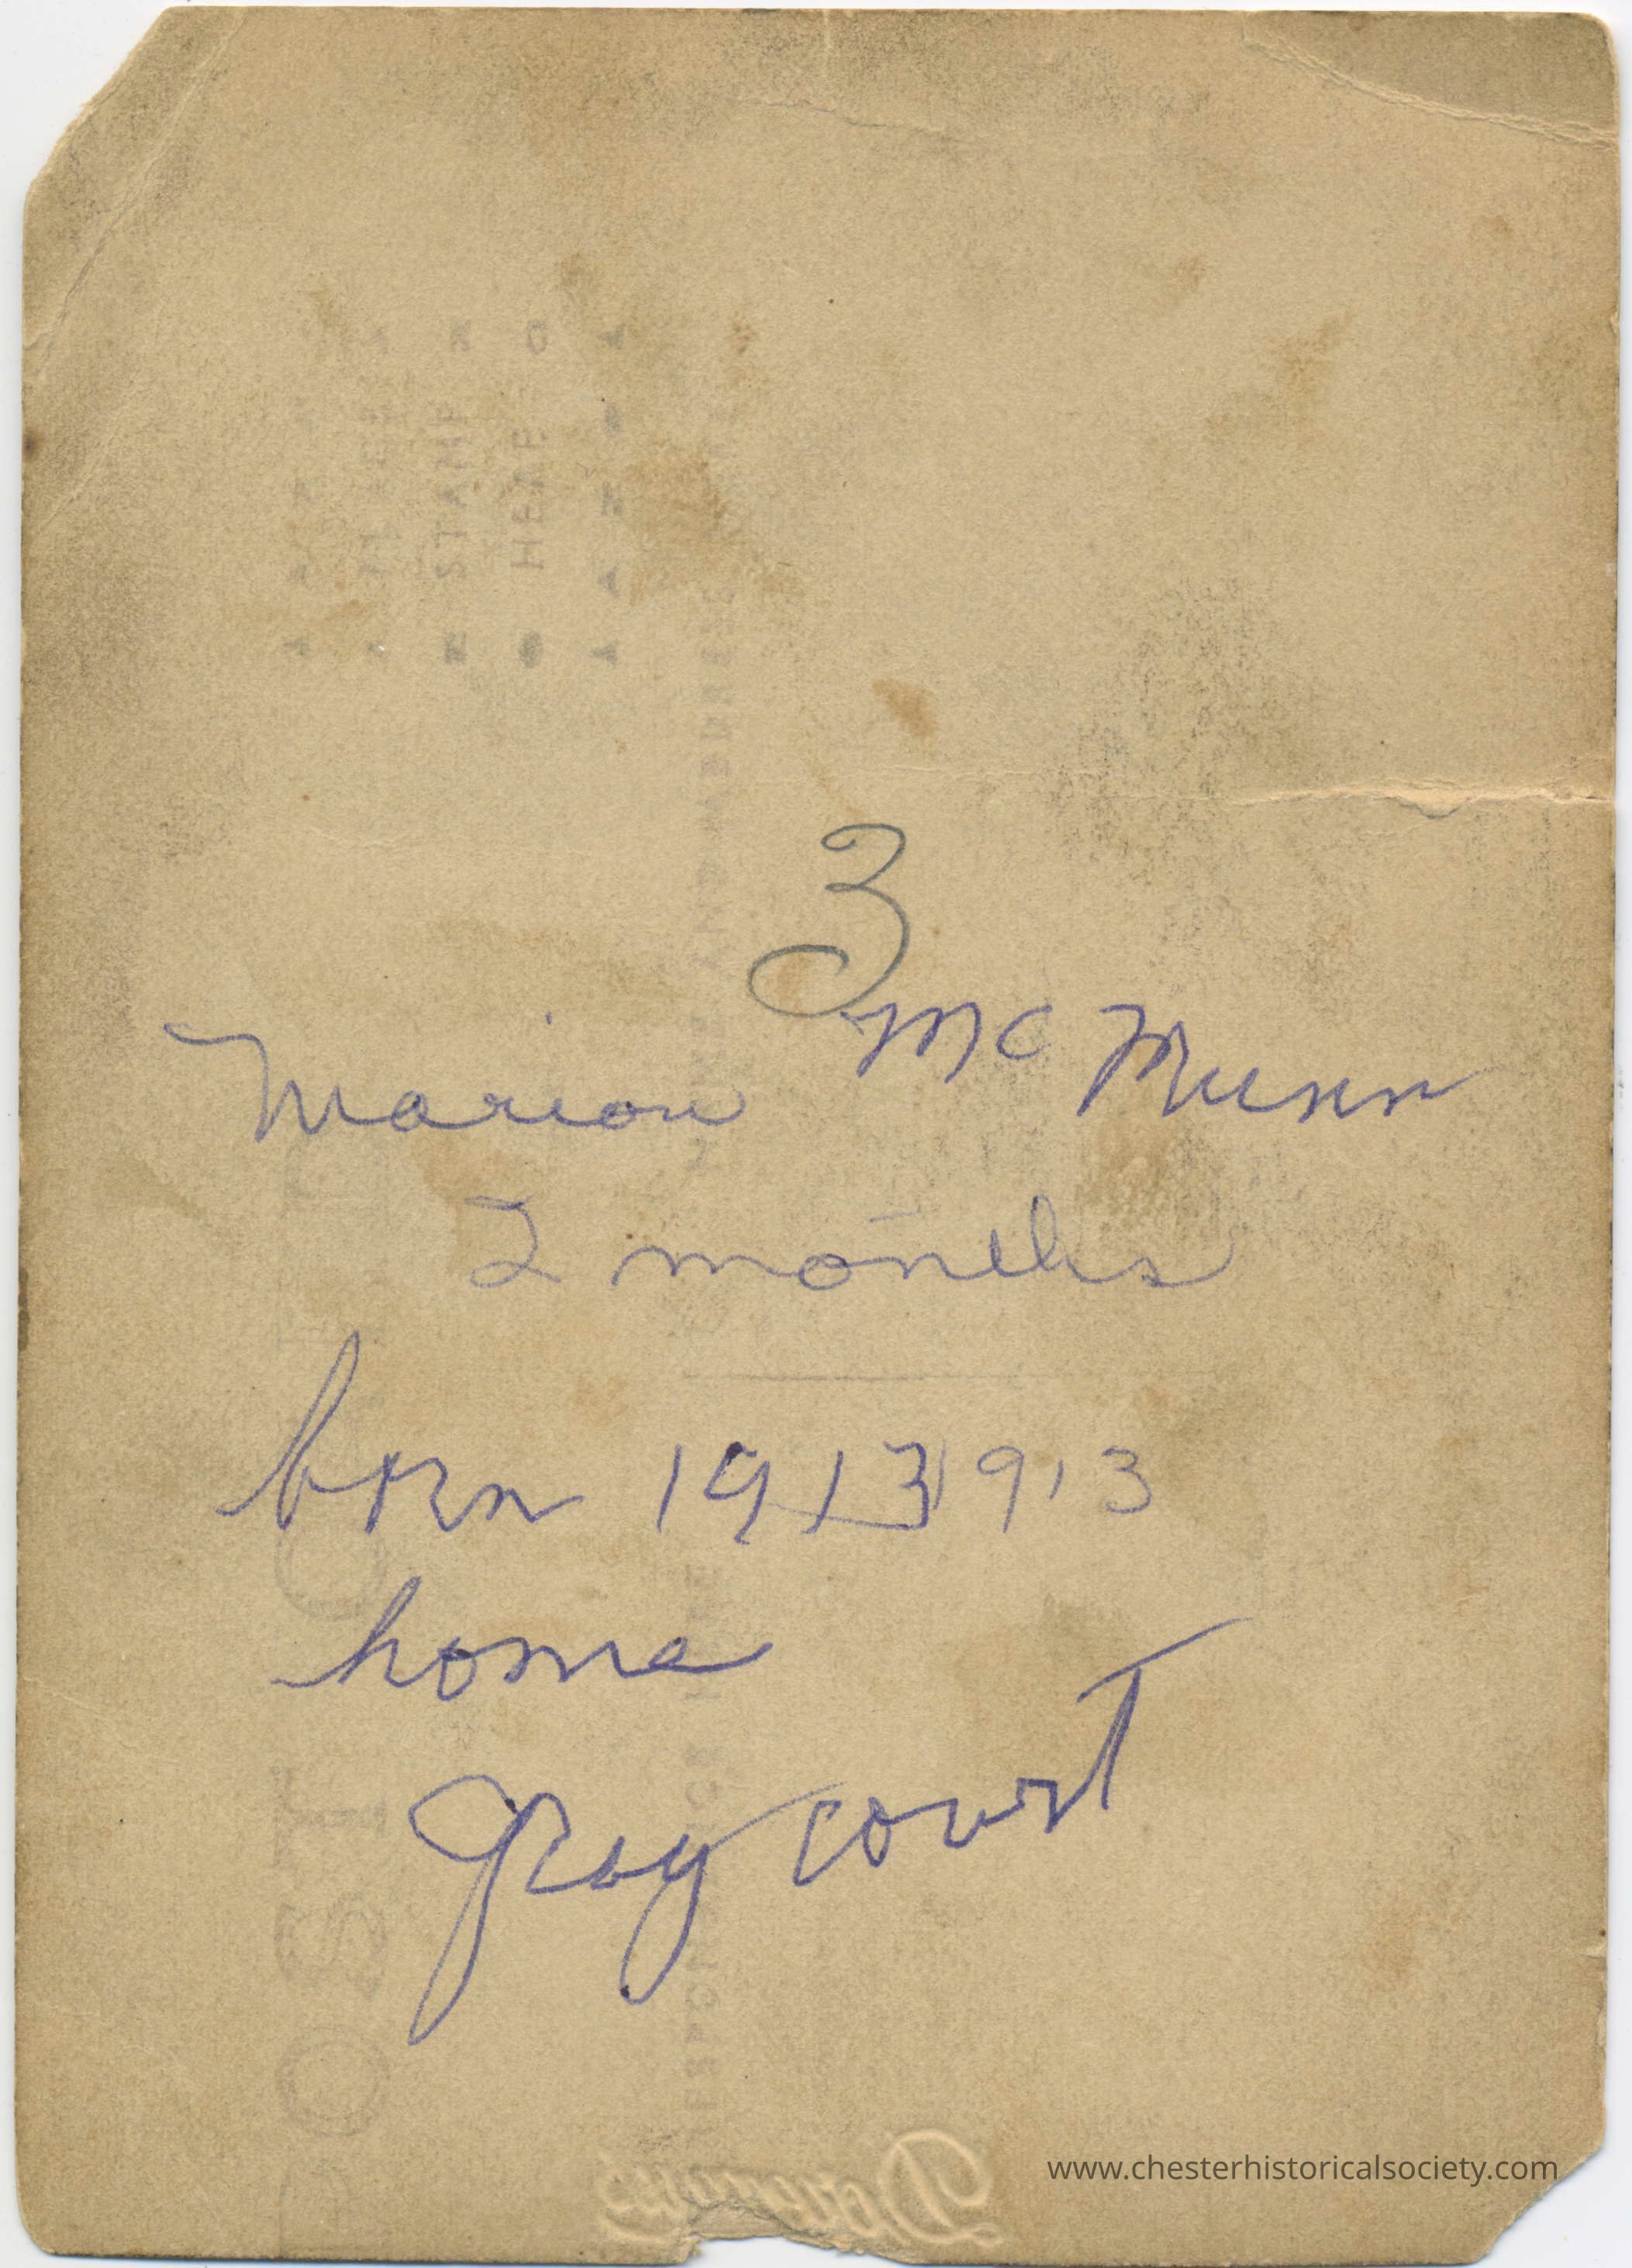 3
Marion Mc Munn
2 months
born 1913 1913
home
Gray court
www.chesterhistoricalsociety.com